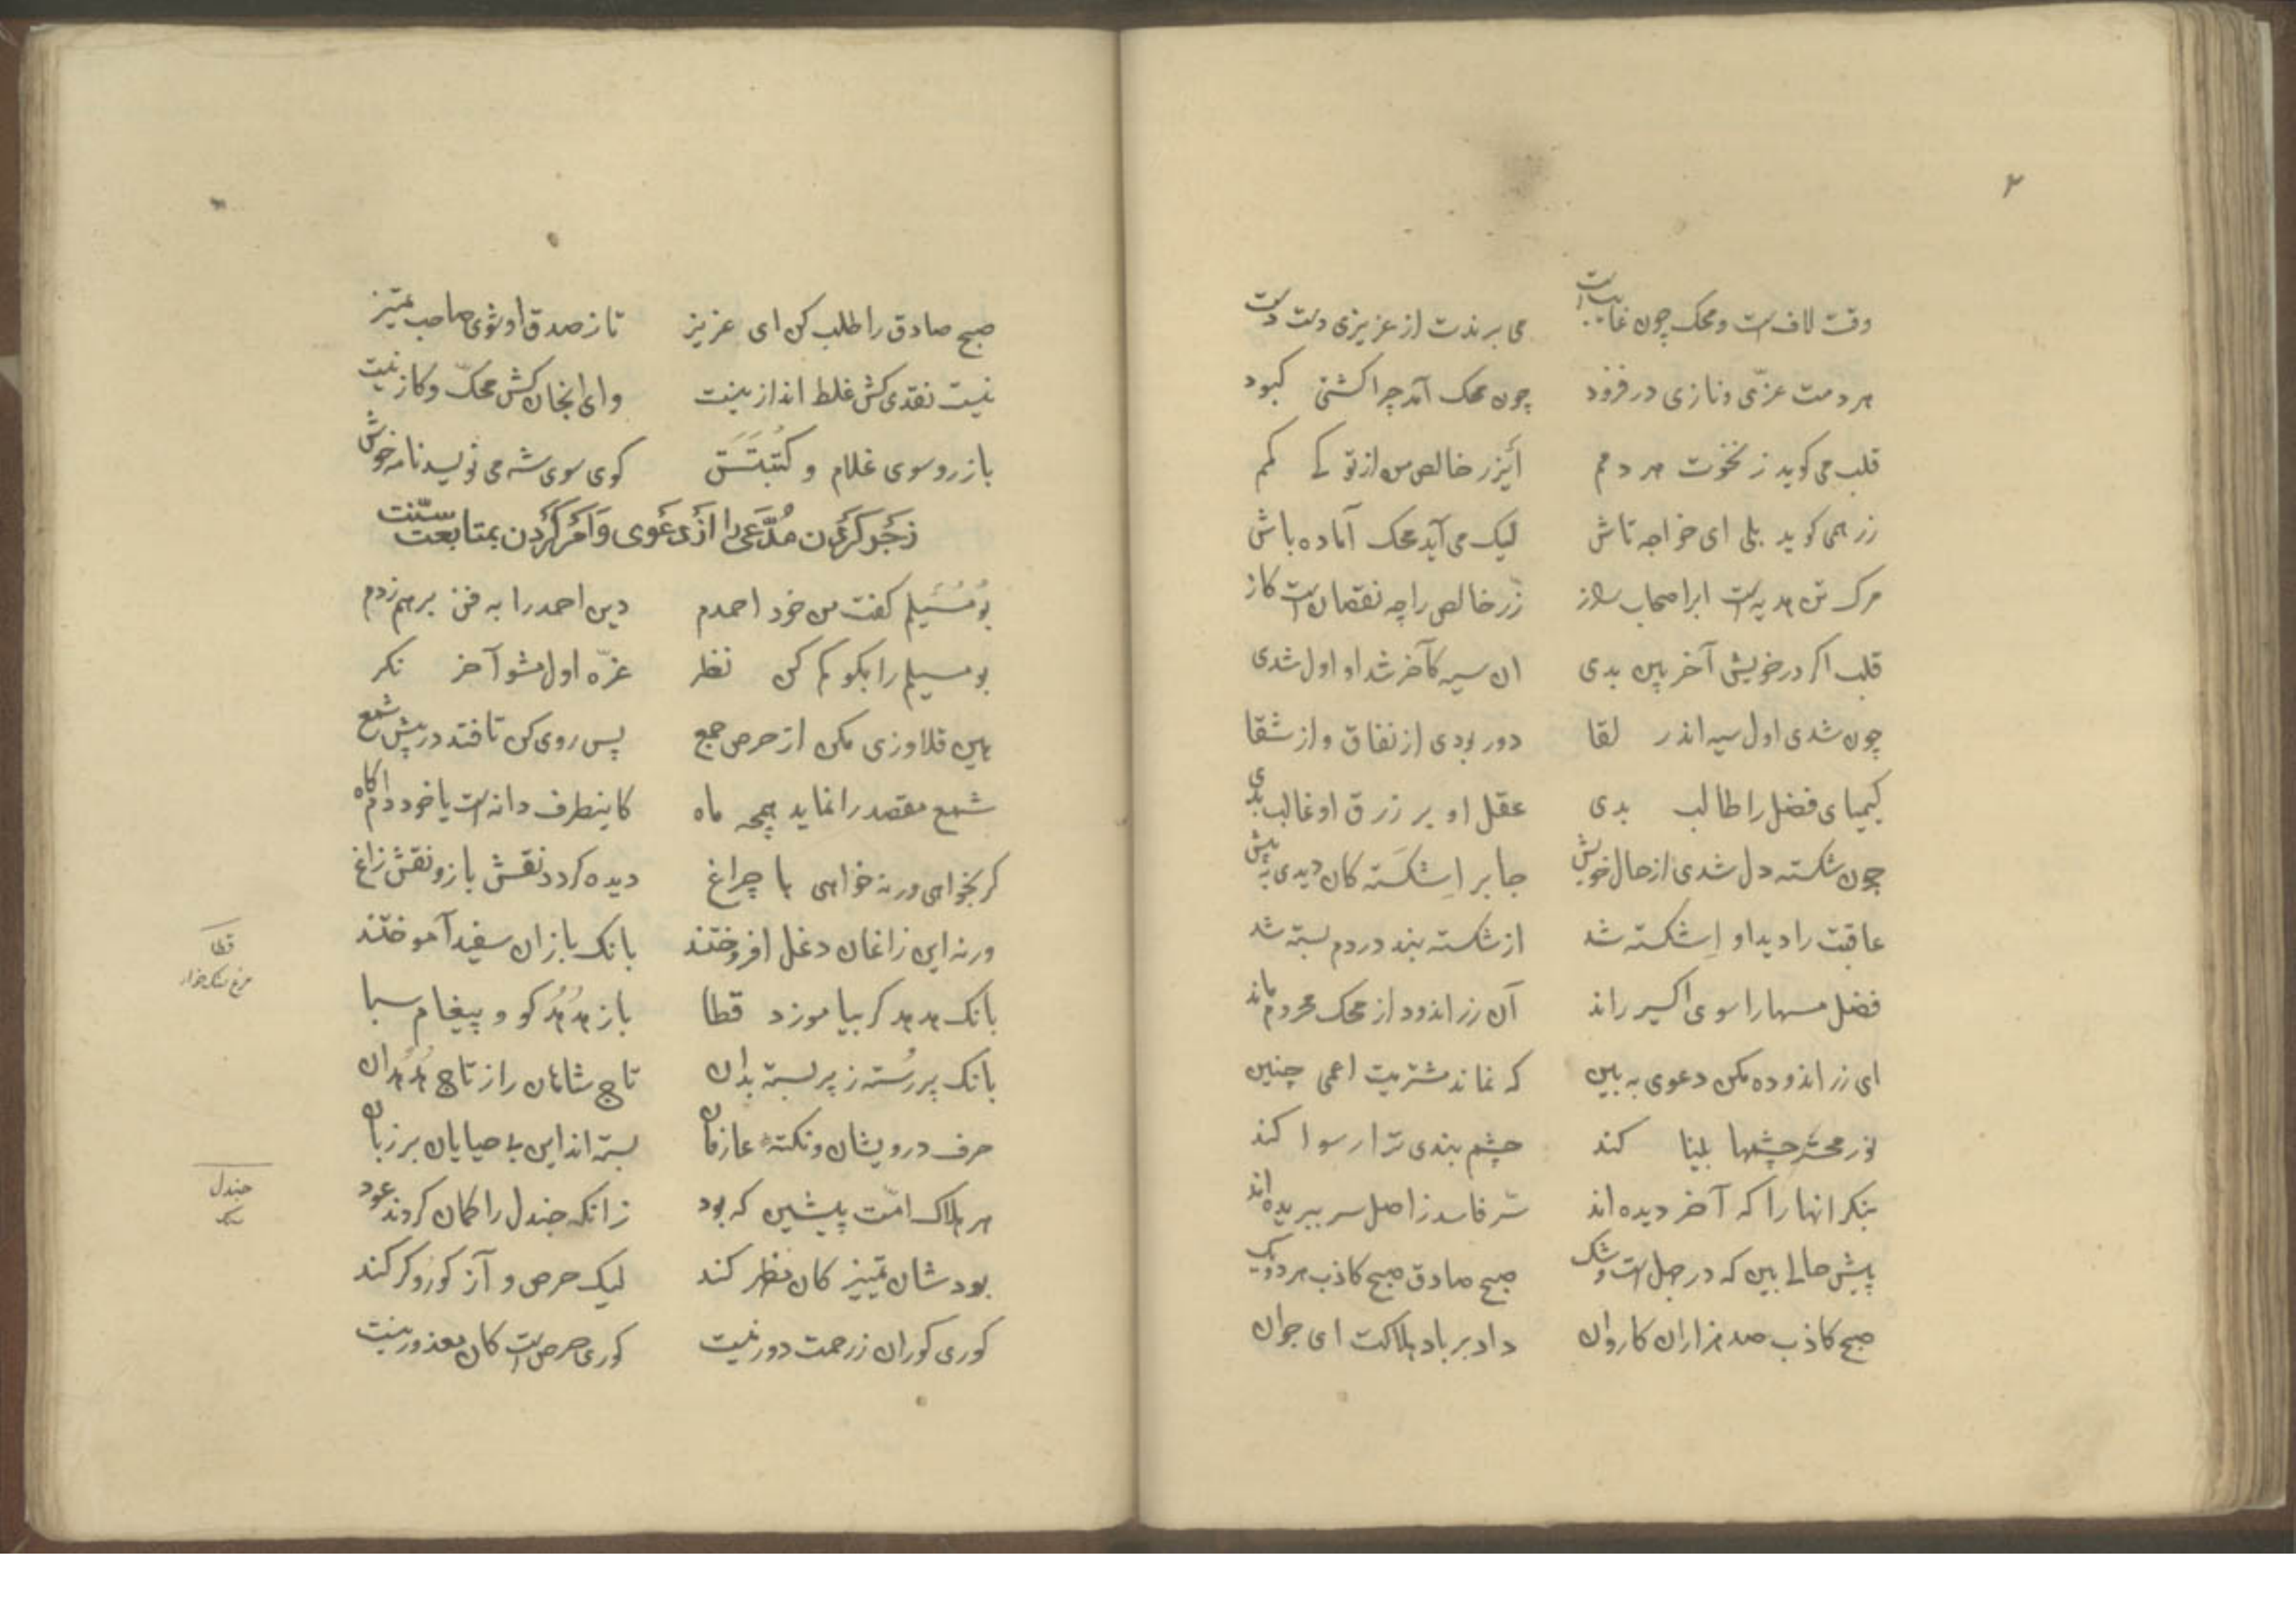 ۲
وقت لافست و محک چون غایبست می برندت از عزیزی دست دست
هر دمت عزّی و نازی در فزود چون محک آمد چرا کشتی کبود
قلب می کوید ز نخوت هر دمم ای زر خالص من از تو کے کمم
زر همی کوید بلی ای خواجه تاش لیک می آید محک آماده باش
مرک تن هدیه است ابر اصحاب راز زرّ خالص را چه نقصانست کاز
قلب اکر در خویش آخر بین بدی ان سیه کآخر شد او اول شدی
چون شدی اول سیه اندر لقا دور بودی از نفاق و از شقا
کیمیای فضل را طالب بدی عقل او بر زرق او غالب بدی
چون شکسته دل شدی از حال خویش جابر اِشکَسته کان دیدی به پیش
عاقبت را دید او اِشکسته شد از شکسته بند در دم بسته شد
فضل مسها را سوی اکسیر راند آن زر اندود از محک محروم ماند
ای زر اندوده مکن دعوی به بین که نماند مشتریت اعمی چنین
نور محشر چشمها بینا کند چشم بندی ترا رسوا کند
بنکر انها را که آخر دیده اند سّر فاسد ز اصل سر ببریده اند
پیش حالے بین که در جهلست و شک صبح صادق صبح کاذب هر دو یک
صبح کاذب صد هزاران کاروان داد بر باد هلاکت ای جوان
صبح صادق را طلب کن ای عزیز تا ز صدق او شوی صاحب تمیز
نیست نقدی کش غلط انداز نیست وای انجان کش محکّ و کاز نیست
باز رو سوی غلام و کُتبتَش کوی سوی شه می نویسد نامه خوش
زَجَر کَردن مُدَّعی را از دَعَوی وَ اَمر کَردن بمتابعت سنّت
بو مُسَیلم کفت من خود احمدم دین احمد را به فن برهم زدم
بو مسیلم را بکو کم کن نظر غرّه اول مشو آخر نکر
هین قلاوزی مکن از حرص جمع پس روی کن تا فتد در پیش شمع
شمع مقصد را نماید همچو ماه کاینطرف دانه است یا خود دامکاه
کر بخواهی ور نه خواهی با چراغ دیده کردد نقش باز و نقش زاغ
ور نه این زاغان دغل افروختند بانک بازان سفید آموختند
بانک هدهد کر بیاموزد قطا باز هُدهُد کو و پیغام سبا
بانک پر رُسته ز پر بسته بدان تاج شاهان را ز تاج هُدهُدان
حرف درویشان و نکته عارفان بسته اند این بے حیایان بر زبان
هر هلاک امّت پیشین که بود زانکه جندل را کمان کردند عود
بودشان تمییز کان مظهر کند لیک حرص و آز کور و کر کند
کوری کوران ز رحمت دور نیست کوری حرص است کان معذور نیست
قطا
مرغ سنکخوار
جندل
سنک